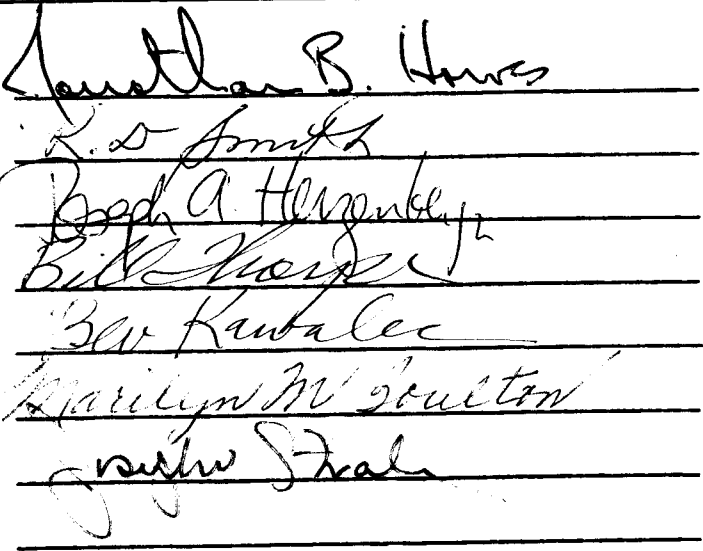 Jonathan B. Howes
R. D. Smith
Joseph A. Herzenberg
Bill Thorpe
Bev Kawalec
Marilyn M Boulton
Joseph Straley